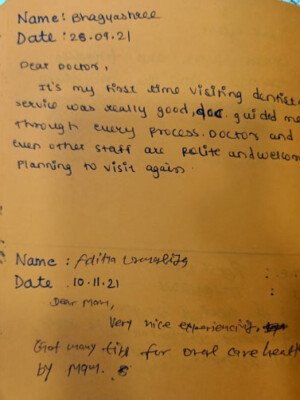 Name: Bhagyashree
Date: 28.09.21
Dear Doctor,
It's my first time visiting dentist
service was really good, guided me
through every process. Doctors and
even other staff are polite and welcom
Planning to visit again.
Name : Aditia
Date 10.11.21
Dear Mam,
Very nice experiencing,
Got many tips for oral care health
by Mam.